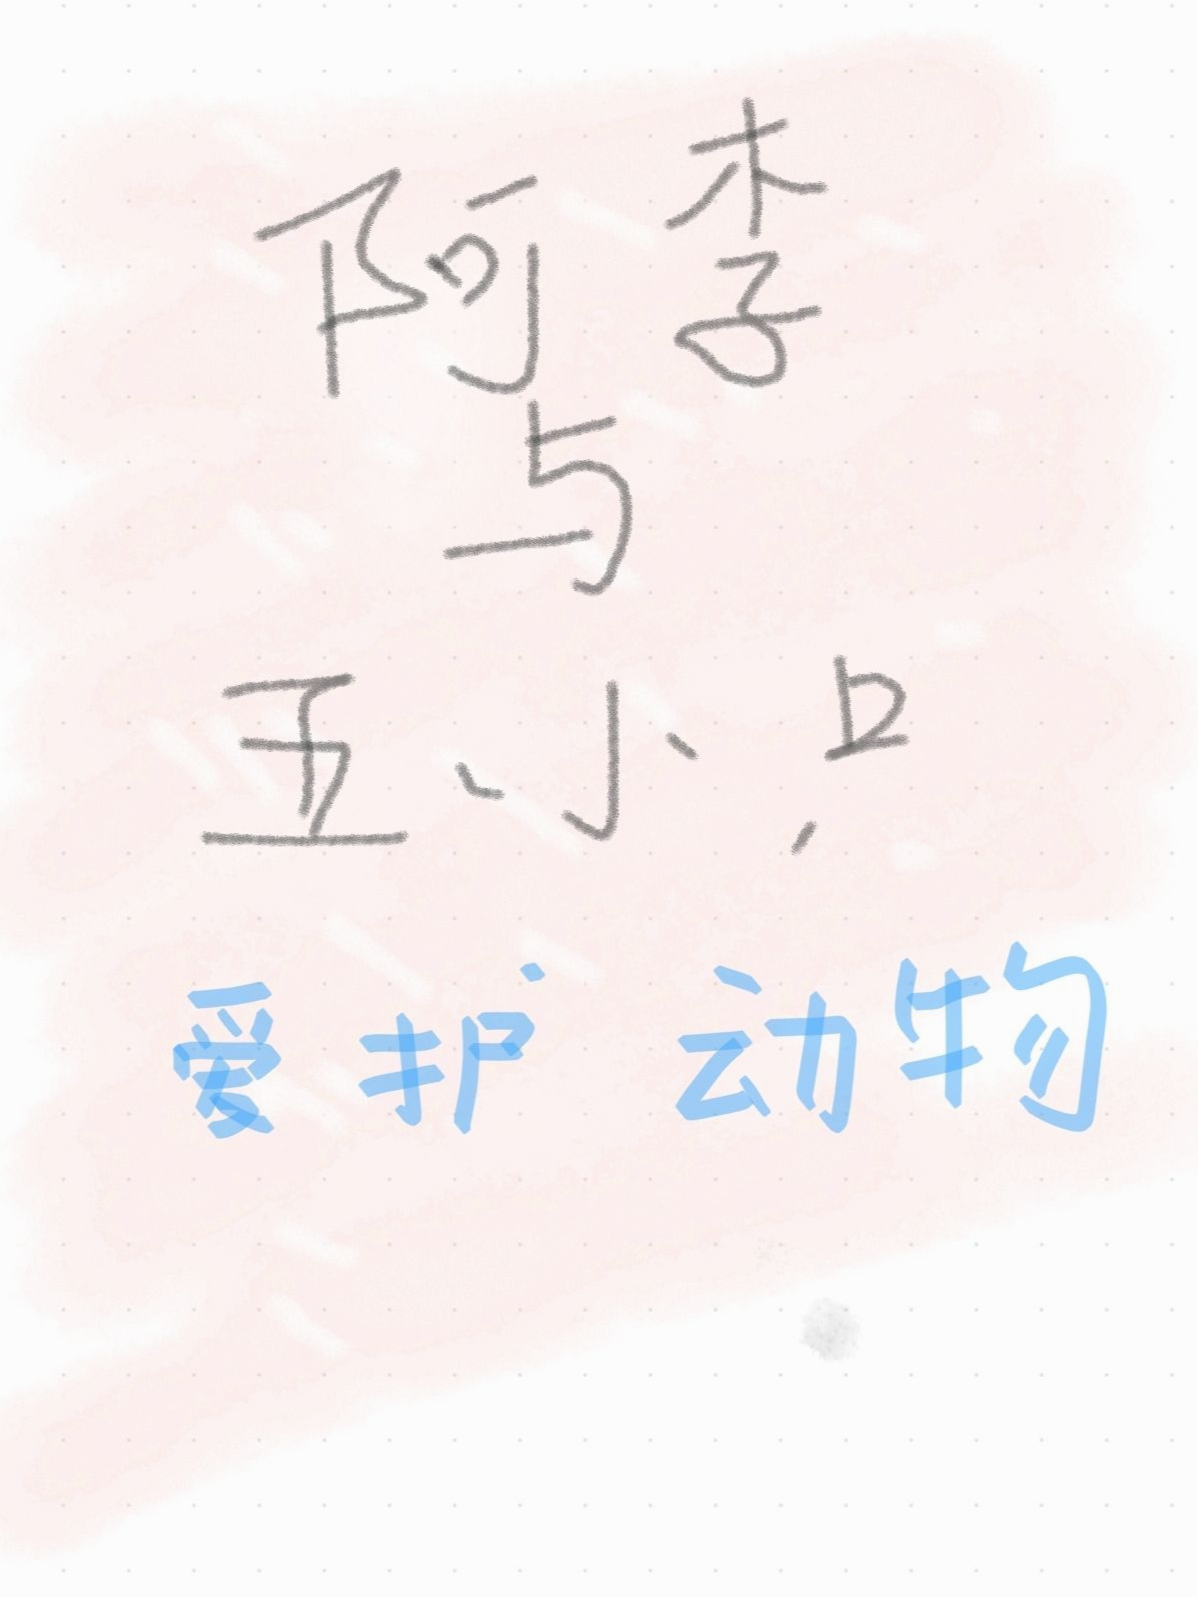 阿李
与
五小口
爱护动物